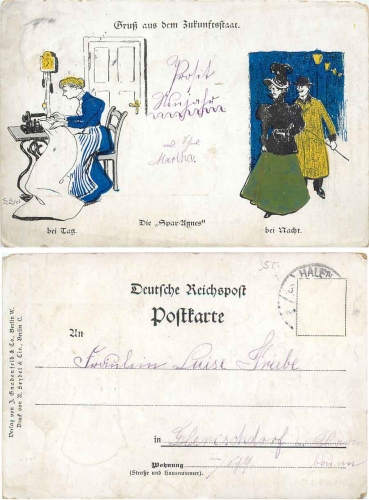 Gruß aus dem Zukunftsstaat.
Prosit
Neujahr
Martha.
bei Tag.
Die „Spar-Agnes"
bei Nacht.
Deutsche Reichspost
Postkarte
An
Fräulein Luise
in
Wohnung
(Straße und Hausnummer)
Verlag von J. Gnadenfeld & Co., Berlin W.
Druck von R. Seidel & Cie., Berlin C.